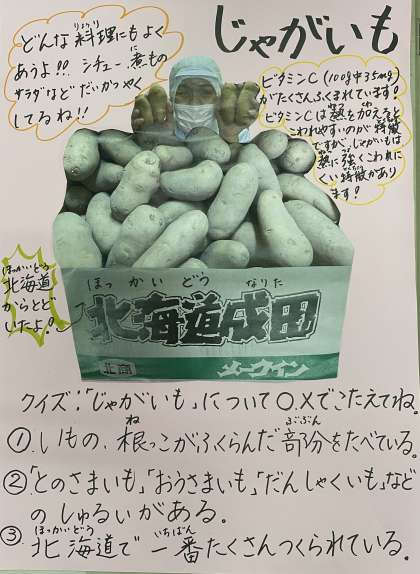 じゃがいも
どんな料理にもよく
りょうり
あうよ!! シチュー、煮もの
に
サラダなどだいかつやく
してるね!!
ビタミンC(100g中35mg)
がたくさんふくまれています!
ビタミンCは熱を加えると
こわれやすいのが特徴
ですが、じゃがいもは
熱に強くこわれに
くい特徴があり
ます!
ほっかいどう
北海道
からとど
いたよ!
ほっかいどう なりた
北海道成田
メークイン
クイズ:「じゃがいも」について○.×でこたえてね。
①.いもの、根っこがふくらんだ部分をたべている。
ね ぶぶん
②「とのさまいも」「おうさまいも」「だんしゃくいも」など
のしゅるいがある。
ほっかいどう いちばん
③.北海道で一番たくさんつくられている。